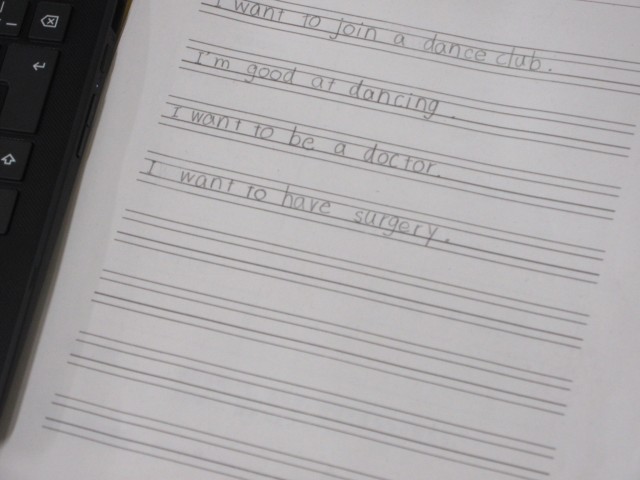 I want to join a dance club.
I'm good at dancing.
I want to be a doctor.
I want to have surgery.